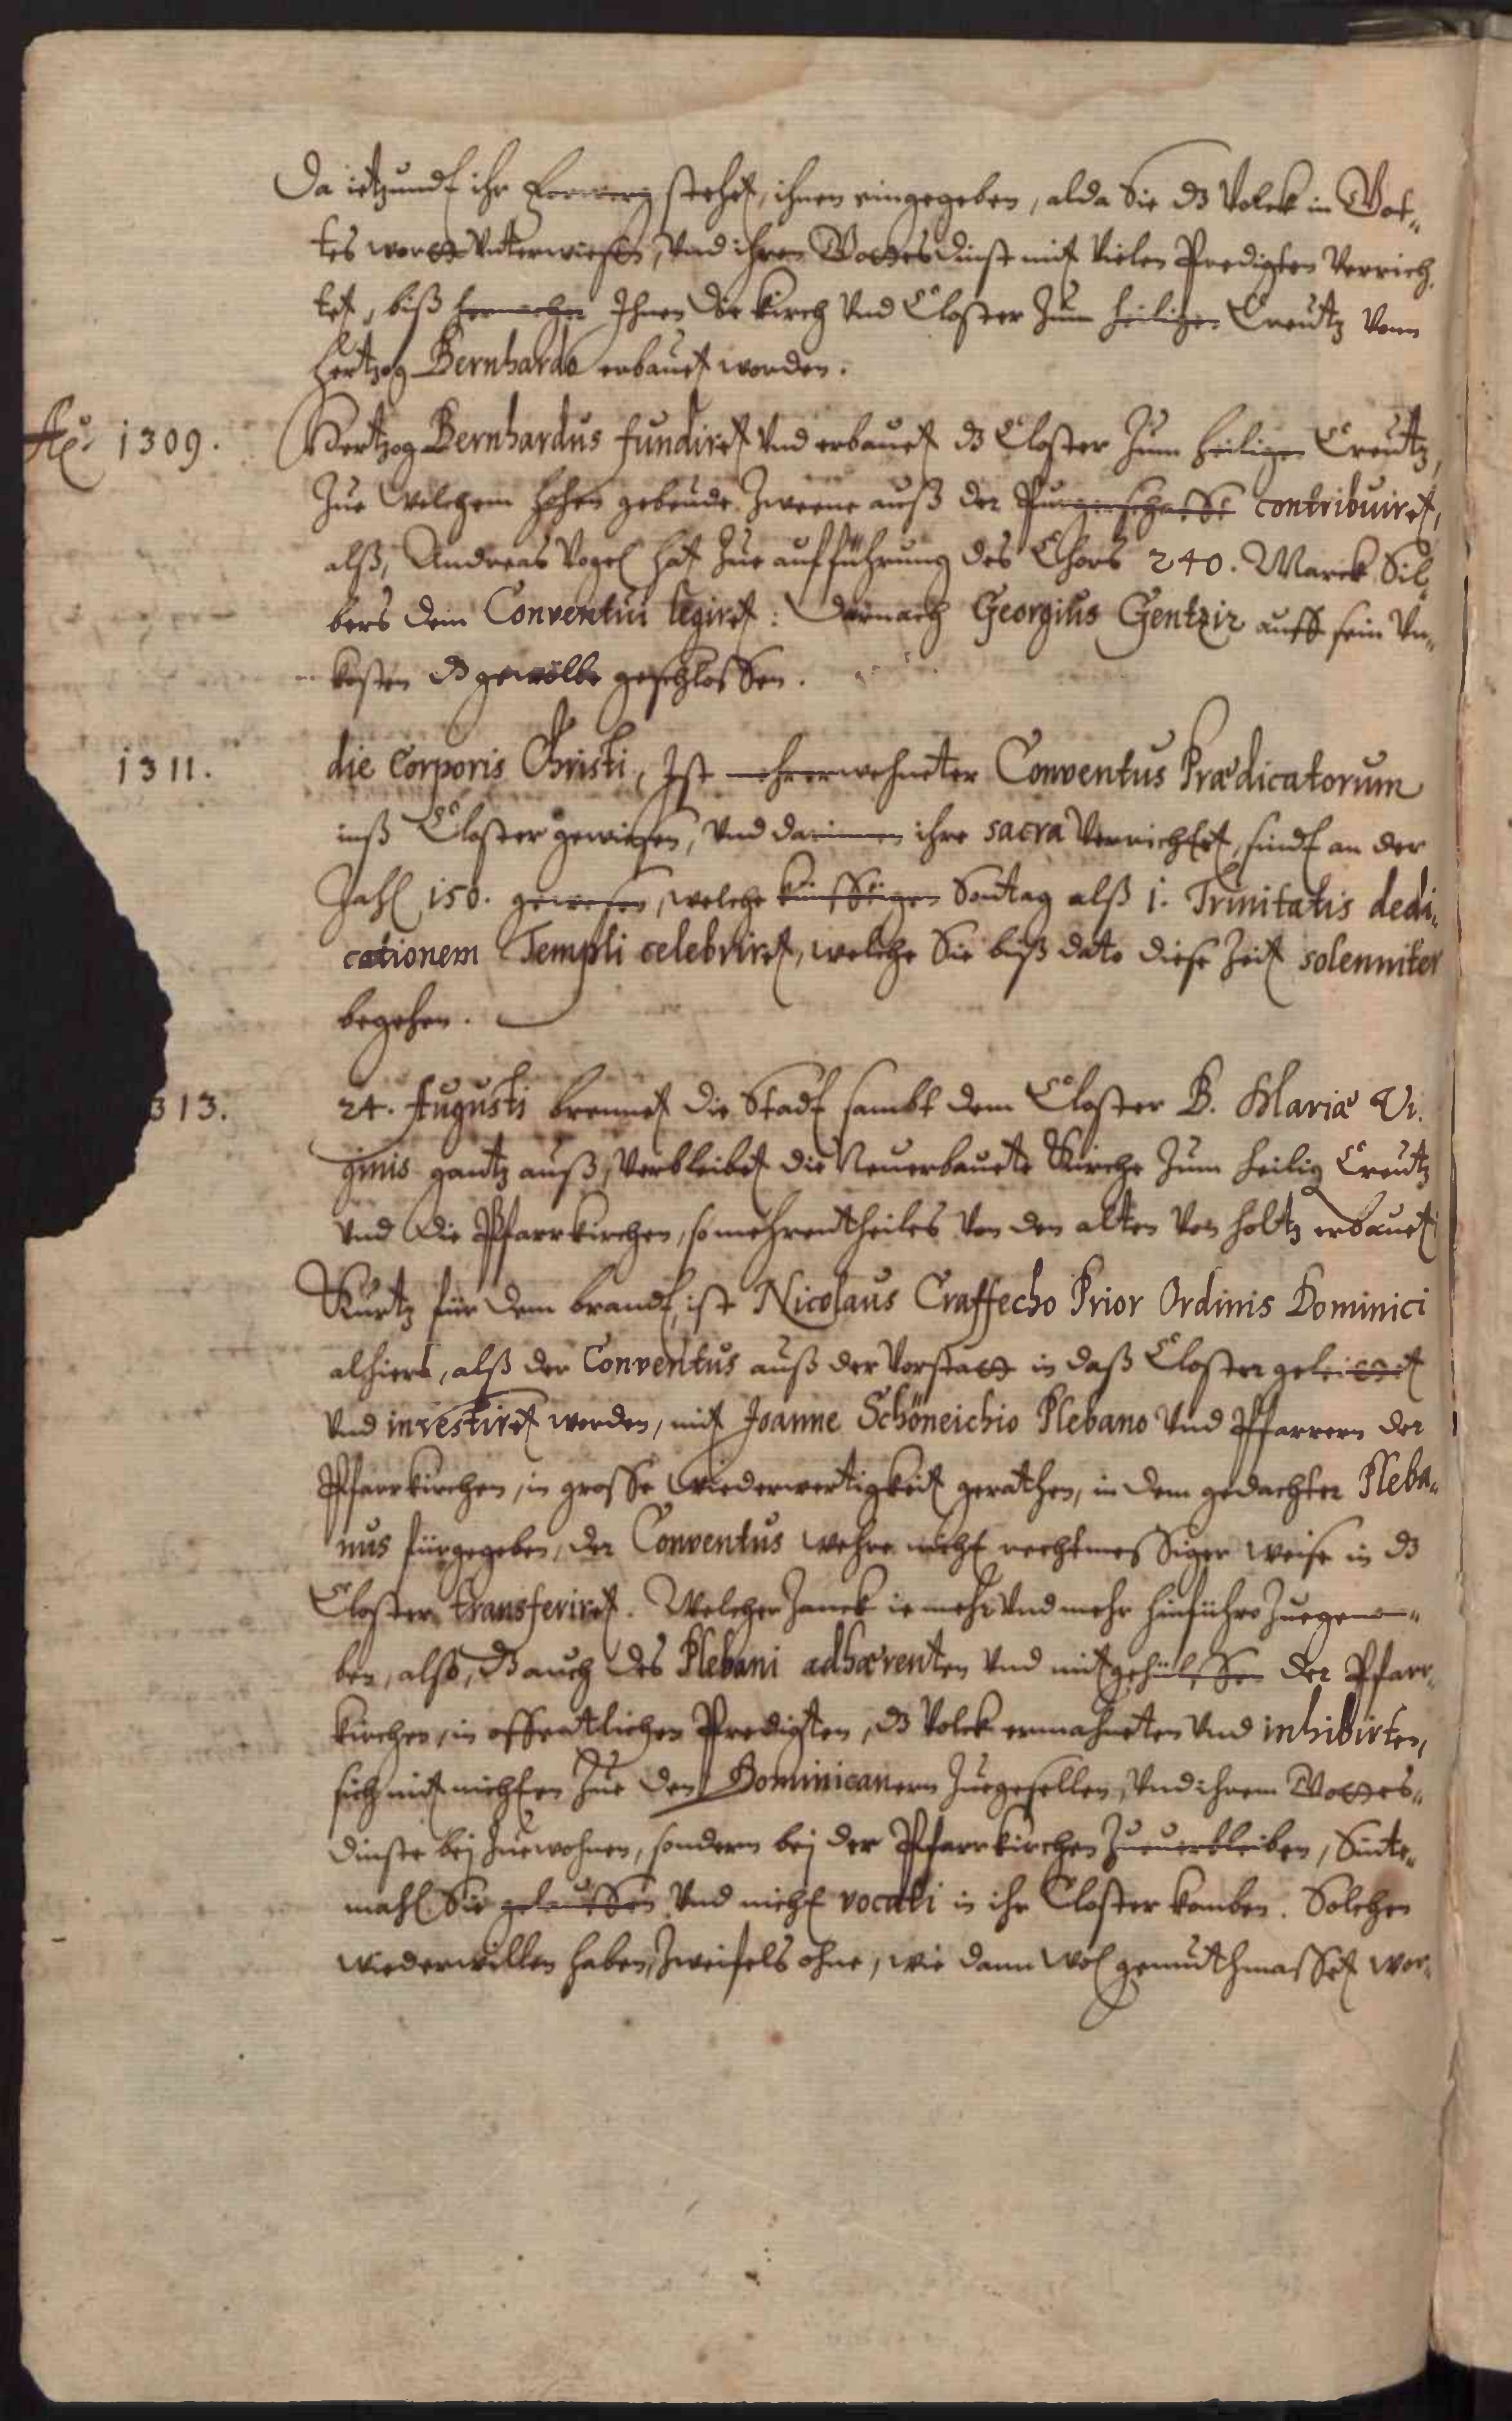 Da ietzundt ihr Forwerg stehet, ihnen eingegeben, alda Sie dz Volck in Got„
tes wortt Unterwiesen, Und ihren Gottesdinst mit Vielen Predigten Verrich„
tet, biß hernacher Ihnen die Kirch Und Closter Zum heiligen Creutz Vonn
Hertzog Bernhardo erbauet worden.
Aō. 1309. Hertzog Bernhardus fundiret Und erbauet dz Closter Zum heiligen Creutz,
Zue Welchem hohen gebeude Zweene auß der Purgerschafft contribuiret,
alß, Andreas Vogel hat Zue aufführung des Chors 240. Marck Sil„
bers dem Conventui legiret: Darnach Georgius Gentzir auff sein Vn„
kosten dz gewölbe geschlossen.
1311. die Corporis Christi, Ist mehrerwehneter Conventus Prædicatorum
inß Closter gewiesen, Und darinnen ihre sacra Verrichtet, sindt an der
Zahl 150. gewesen, welche künfftigen Sontag alß 1. Trinitatis dedi„
cationem Templi celebriret, welche Sie biß dato diese Zeit solenniter
begehen.
313. 24. Augusti brennet die Stadt sambt dem Closter B. Mariæ Vi„
ginis gantz auß, Verbleibet die Neuerbauete Kirche Zum heilig Creutz
Und die Pfarrkirchen, so mehrentheiles Von den alten Von holtz erbauet
Kurtz für dem brandt, ist Nicolaus Craffecho Prior Ordinis Dominici
alhiero, alß der Conventus auß der Vorstatt in daß Closter geleittet
Und investiret worden, mit Joanne Schöneichio Plebano Und Pfarrern der
Pfarrkirchen, in grosse Wiederwertigkeit gerathen, in dem gedachter Pleba„
nus fürgegeben, der Conventus wehre nicht rechtmessiger weise in dz
Closter transferiret. Welcher Zanck ie mehr Und mehr hinführo Zuegenom„
ben, also, dz auch des Plebani adhærenten Und mitgehülffen der Pfarr„
kirchen, in offentlichen Predigten, dz Volck ermahneten Und inhibirten,
sich mit nichten Zue den Dominicanern Zuegesellen, Und ihrem Gottes„
dinste bej Zuewohnen, sondern bej der Pfarrkirchen Zuuerbleiben, Sinte„
mahl Sie gelauffen Und nicht vocati in ihr Closter komben. Solchen
wiederwillen haben, Zweifels ohne, wie dann wol gemuthmasset wor„